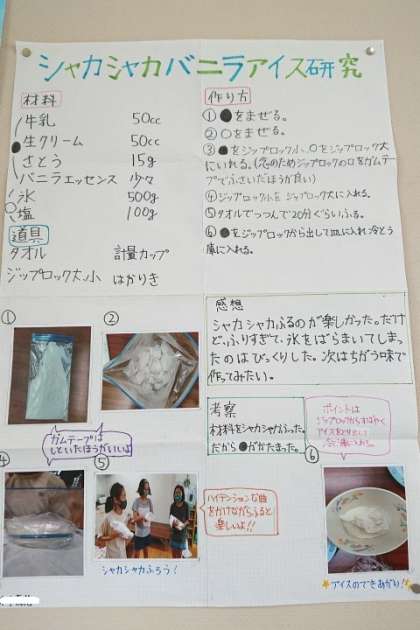 シャカシャカバニラアイス研究
材料
牛乳 50cc
生クリーム 50cc
さとう 15g
バニラエッセンス 少々
氷 500g
塩 100g
道具
タオル 計量カップ
ジップロック大、小 はかりき
作り方
①●をまぜる。
②○をまぜる。
③●をジップロック小、○をジップロック大
にいれる。(念のためジップロックの口をガムテ
ープでふさいだほうが良い)
④ジップロック小をジップロック大に入れる。
⑤タオルでつつんで20分ぐらいふる。
⑥●をジップロックから出して皿に入れ冷とう
庫に入れる。
感想
シャカシャカふるのが楽しかった。だけ
ど、ふりすぎて、氷をばらまいてしまっ
たのはびっくりした。次はちがう味で
作ってみたい。
考察
材料をシャカシャカふった。
だから●がかたまった。
①
②
ガムテープは
しといたほうがいいよ
④
⑤
シャカシャカふろう!
ハイテンションな曲
をかけながらふると
楽しいよ!!
⑥
ポイントは
ジップロックからすばやく
アイスをとり出して
アイスのできあがり!